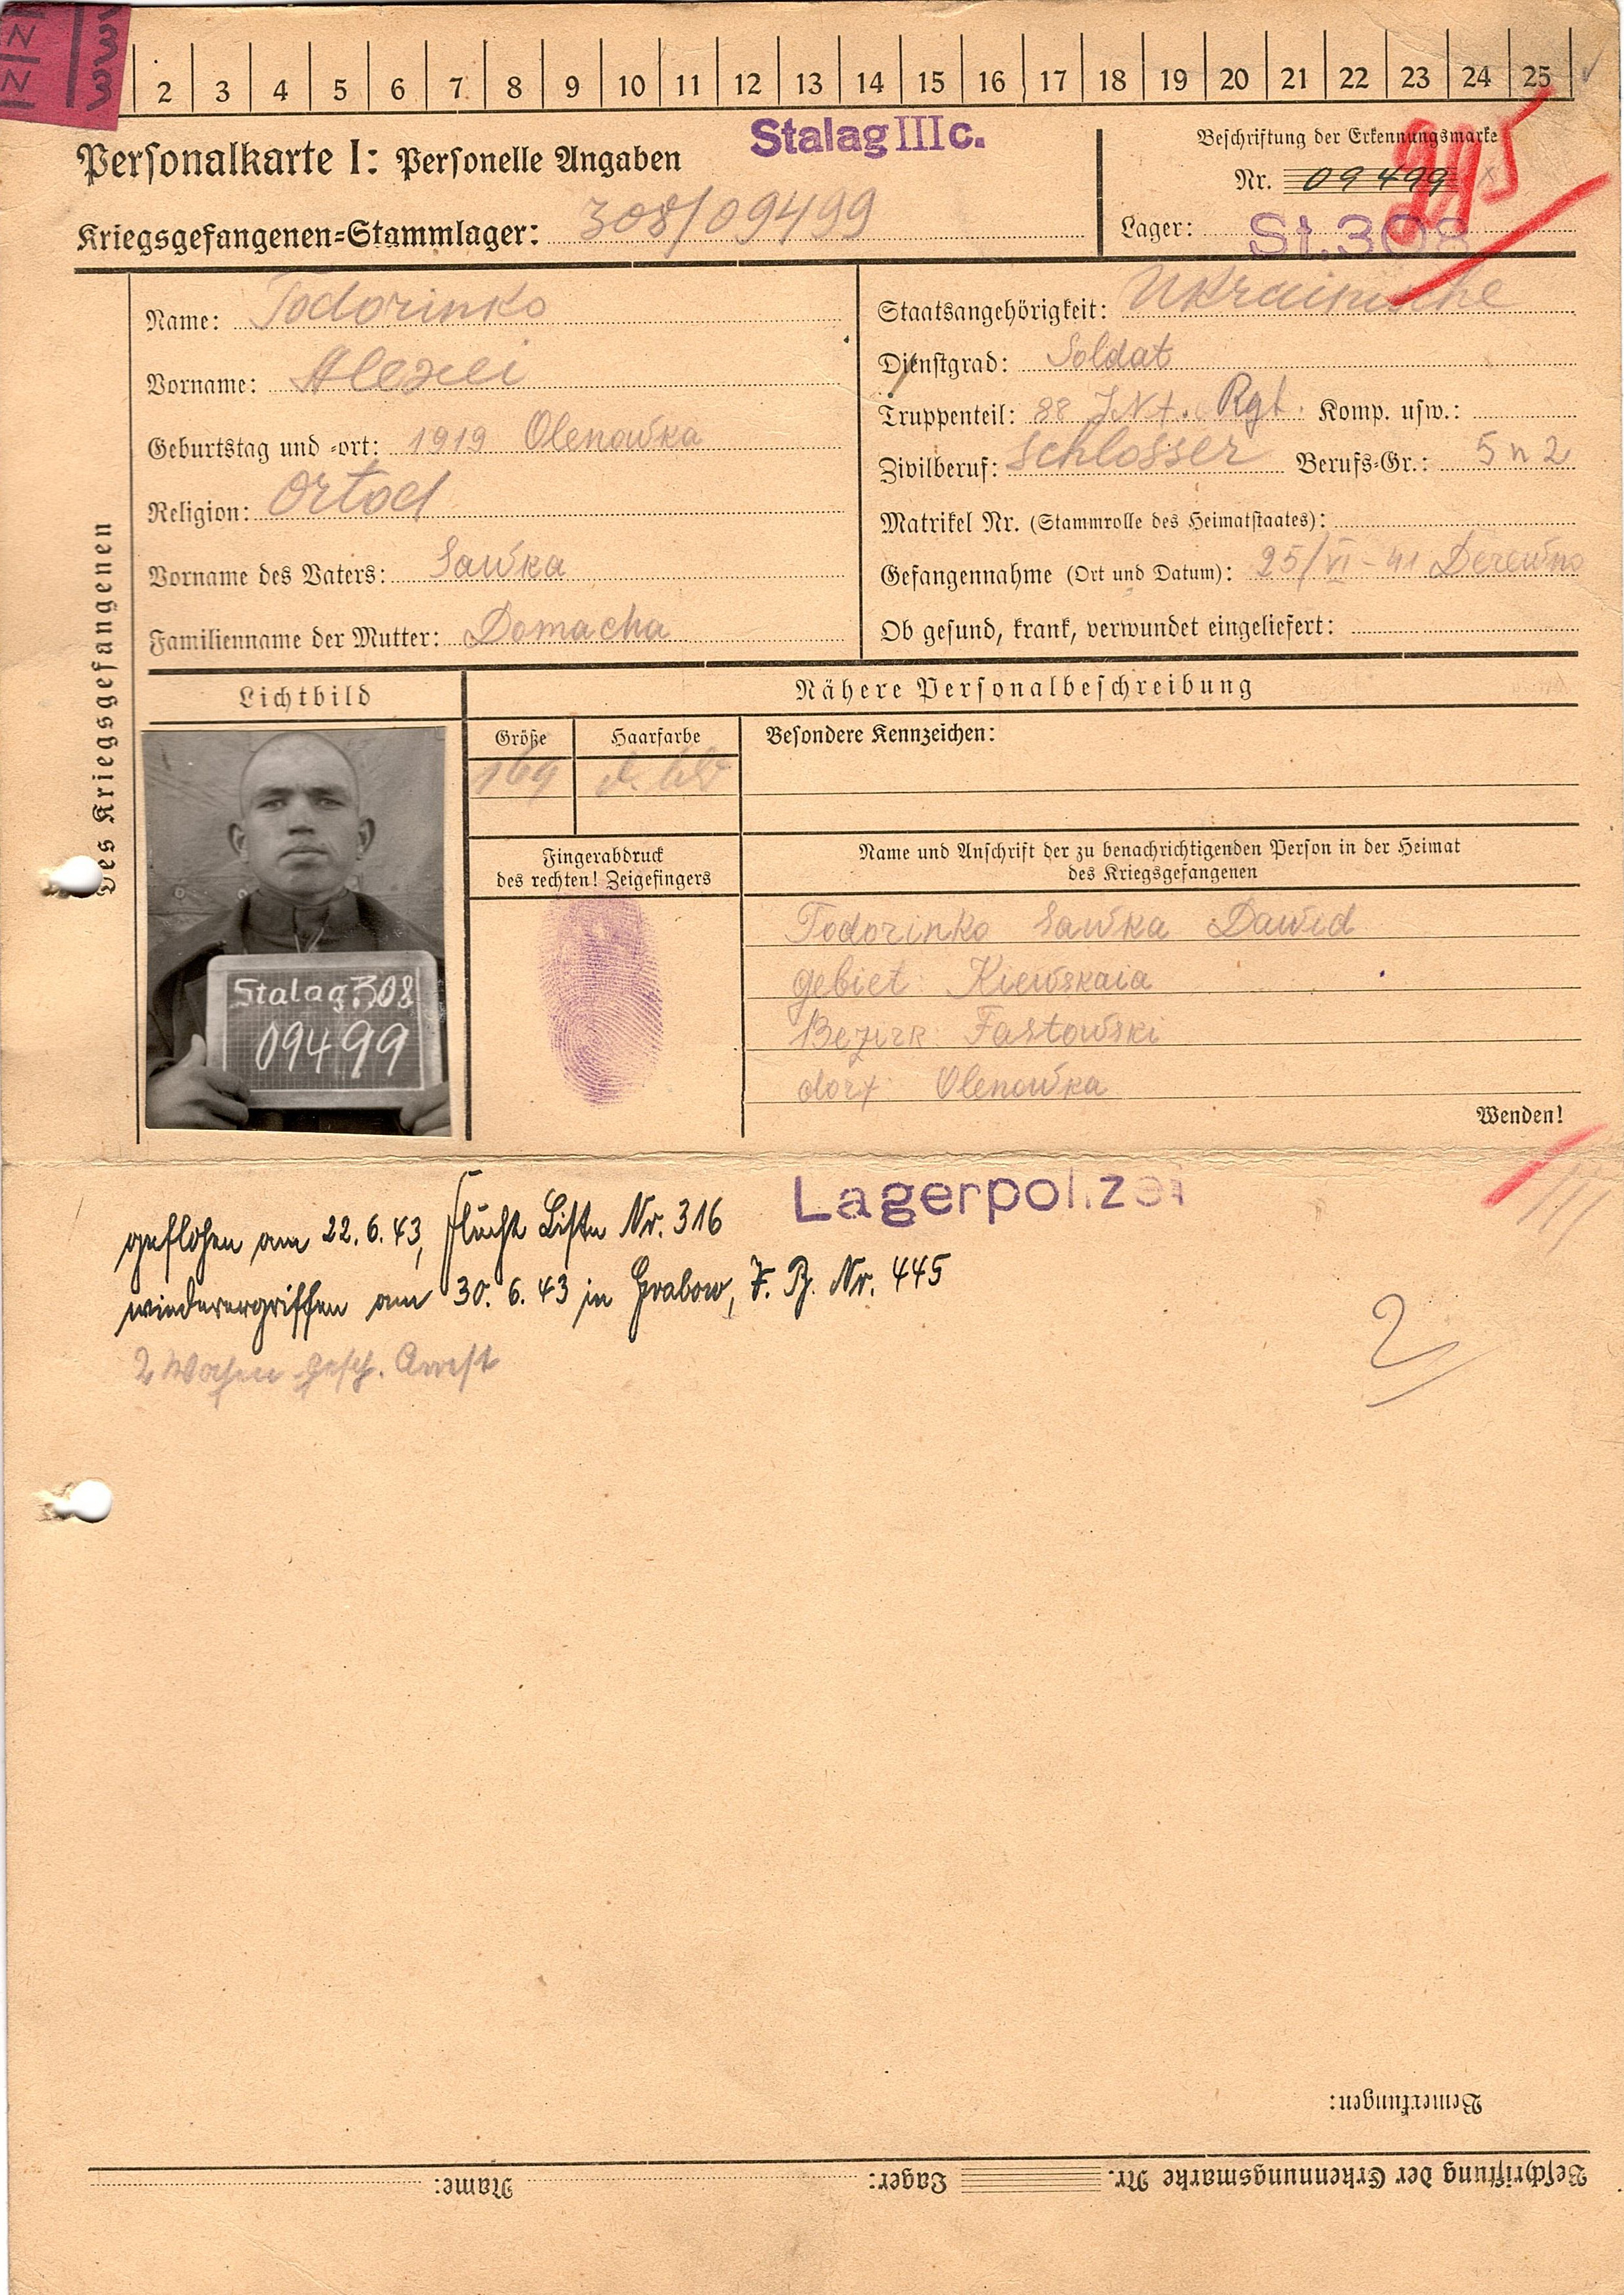 2 3 4 5 6 7 8 9 10 11 12 13 14 15 16 17 18 19 20 21 22 23 24 25
N N 333
Stalag III c.
Personalkarte I: Personelle Angaben
Kriegsgefangenen=Stammlager: 308/09499
Beschriftung der Erkennungsmarke
Nr. 09499
Lager: St.308
des Kriegsgefangenen
Name: Todorinko
Vorname: Alexei
Geburtstag und -ort: 1919 Olenowka
Religion: Ortod
Vorname des Vaters: Sawka
Familienname der Mutter: Domacha
Staatsangehörigkeit: Ukrainische
Dienstgrad: Soldat
Truppenteil: 88 Inf. Rgt. Komp. usw.:
Zivilberuf: Schlosser Berufs-Gr.: 5 n 2
Matrikel Nr. (Stammrolle des Heimatstaates):
Gefangennahme (Ort und Datum): 25/VI-41 Derewno
Ob gesund, krank, verwundet eingeliefert:
Lichtbild
Nähere Personalbeschreibung
Größe
169
Haarfarbe
Besondere Kennzeichen:
Fingerabdruck
des rechten! Zeigefingers
Name und Anschrift der zu benachrichtigenden Person in der Heimat
des Kriegsgefangenen
Todorinko Sawka Dawid
gebiet Kiewskaia
Bezirk Fastowski
dorf Olenowka
Wenden!
Stalag 308
09499
Lagerpolizei
geflohen am 22.6.43, Flucht Liste Nr. 316
wiederergriffen am 30.6.43 in Grabow, F. B. Nr. 445
2 Wochen gesch. Arrest
2
Bemerkungen:
Beschriftung der Erkennungsmarke Nr. Lager: Name: